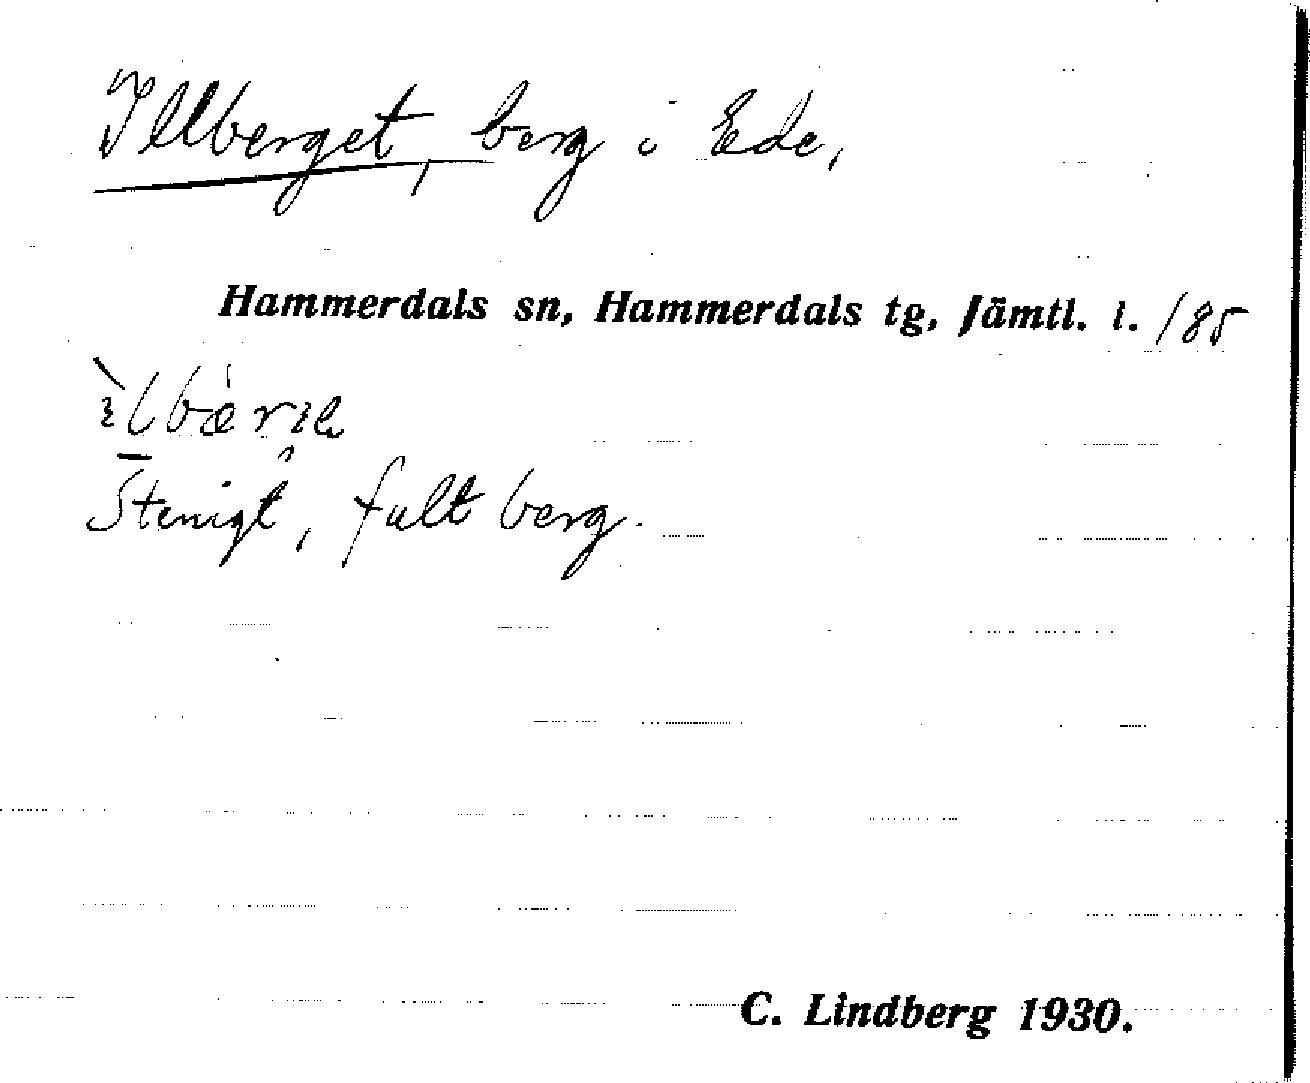 Illberget, berg i Ede,
Hammerdals sn, Hammerdals tg, Jämtl. l. /85
Stenigt, fult berg.
C. Lindberg 1930.